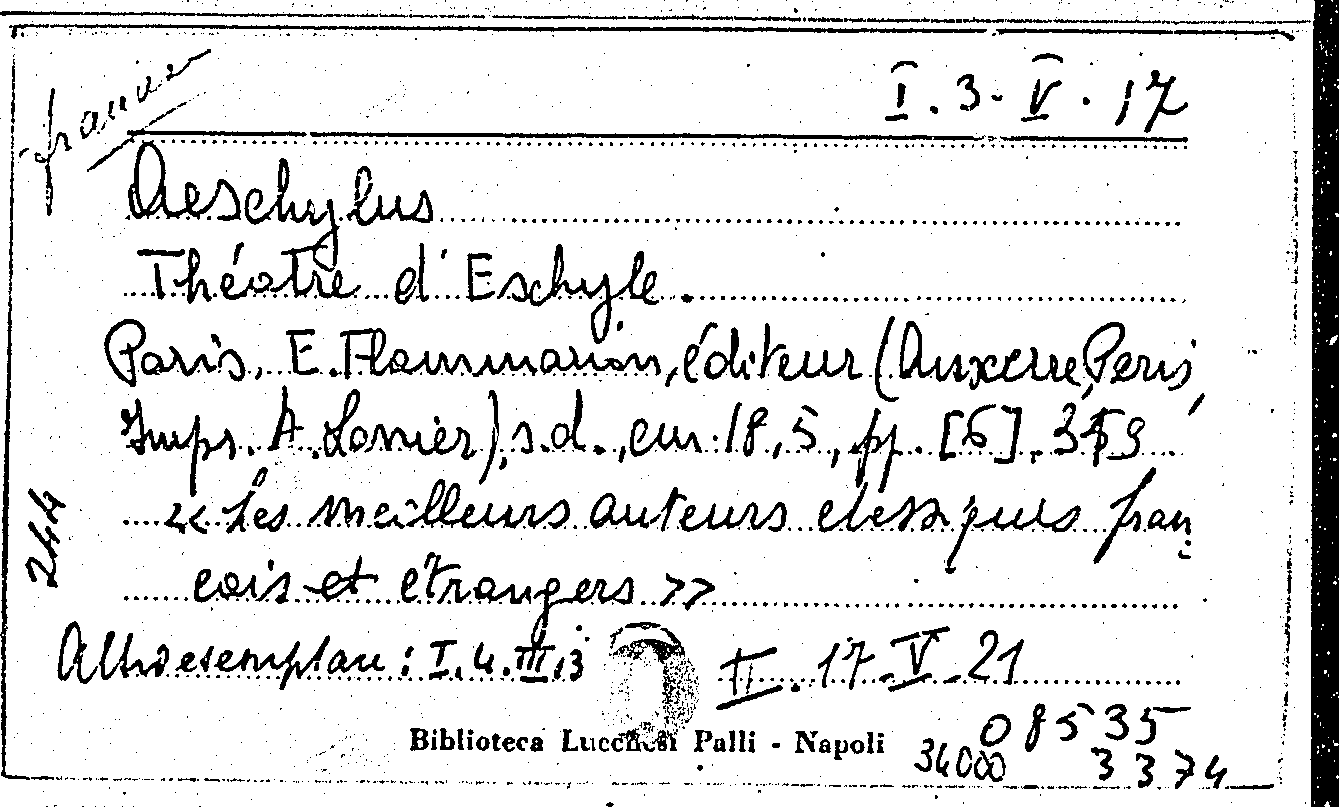 I. 3. V. 17
Aeschylus
Théatre d'Eschyle.
Paris, E. Flammarion, éditeur (Auxerre, Paris,
Impr. A. Lanier), s.d., cm. 18,5, pp. [6]. 359
<< Les meilleurs auteurs classiques fran
cois et étrangers >>
244
Altro esemplare: I. 4. III. 3
II. 17. V. 21
Biblioteca Lucchesi Palli - Napoli
08535
34000
3374